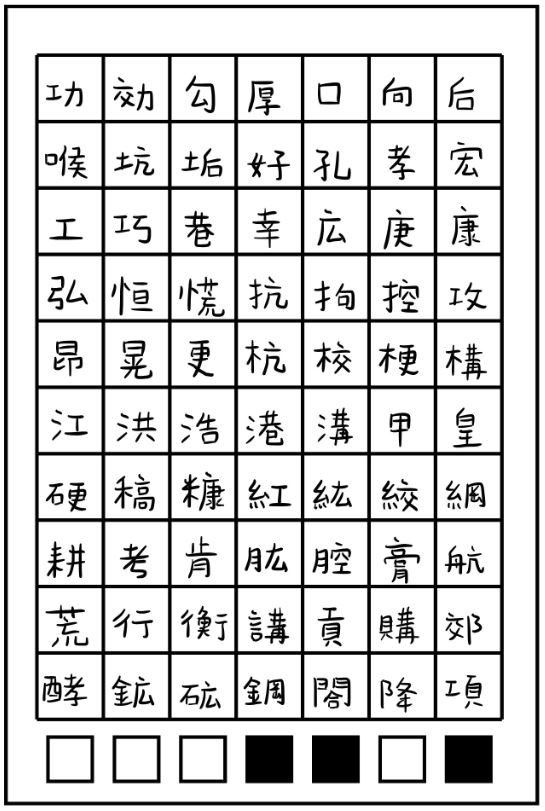 功 効 勾 厚 口 向 后
喉 坑 垢 好 孔 孝 宏
工 巧 巷 幸 広 庚 康
弘 恒 慌 抗 拘 控 攻
昂 晃 更 杭 校 梗 構
江 洪 浩 港 溝 甲 皇
硬 稿 糠 紅 紘 絞 綱
耕 考 肯 肱 腔 膏 航
荒 行 衡 講 貢 購 郊
酵 鉱 砿 鋼 閤 降 項